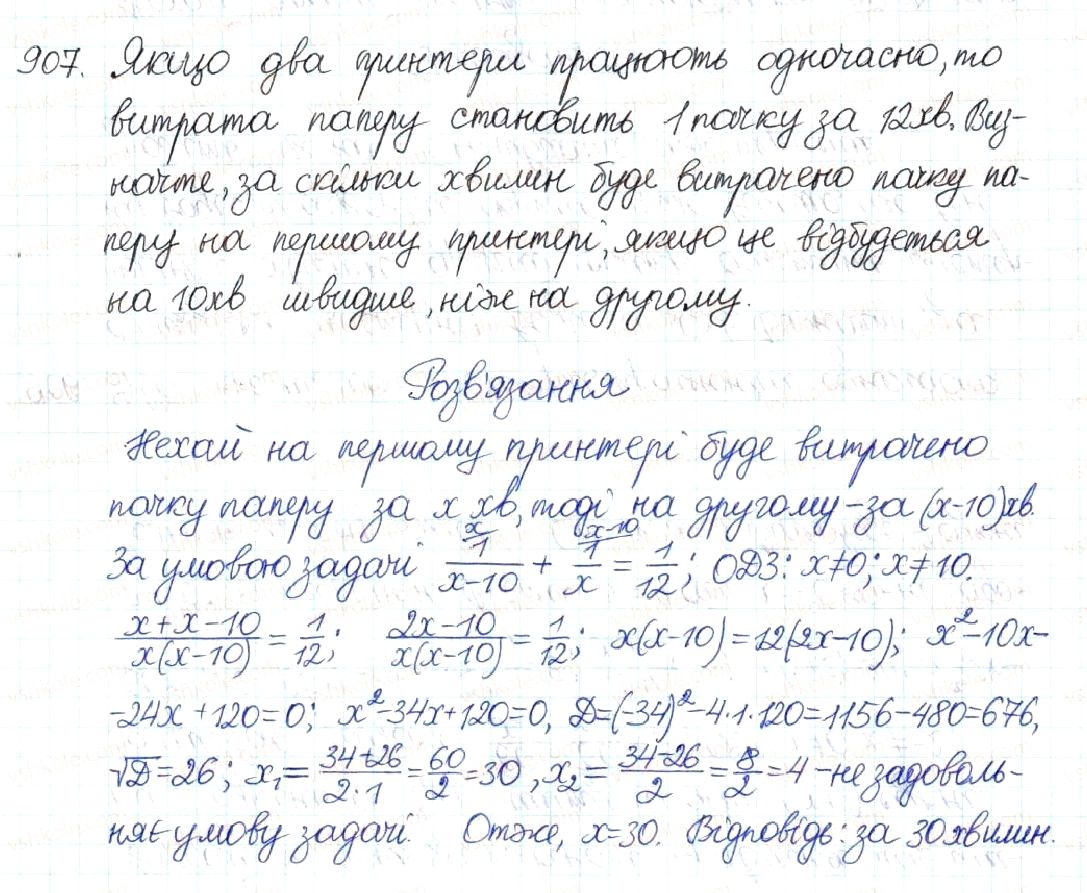 907. Якщо два принтери працюють одночасно, то
витрата паперу становить 1 пачку за 12 хв. Виз-
начте, за скільки хвилин буде витрачено пачку па-
перу на першому принтері, якщо це відбудеться
на 10 хв швидше, ніж на другому.
Розв'язання
Нехай на першому принтері буде витрачено
пачку паперу за x хв, тоді на другому – за (x-10) хв.
За умовою задачі x/ 1/(x-10) + x-10/ 1/x = 1/12; ОДЗ: x≠0; x≠10.
(x+x-10)/(x(x-10)) = 1/12; (2x-10)/(x(x-10)) = 1/12; x(x-10)=12(2x-10); x²-10x-
-24x+120=0; x²-34x+120=0, D=(-34)²-4·1·120=1156-480=676,
√D=26; x₁=(34+26)/(2·1)=60/2=30, x₂=(34-26)/2=8/2=4 – не задоволь-
няє умову задачі. Отже, x=30. Відповідь: за 30 хвилин.